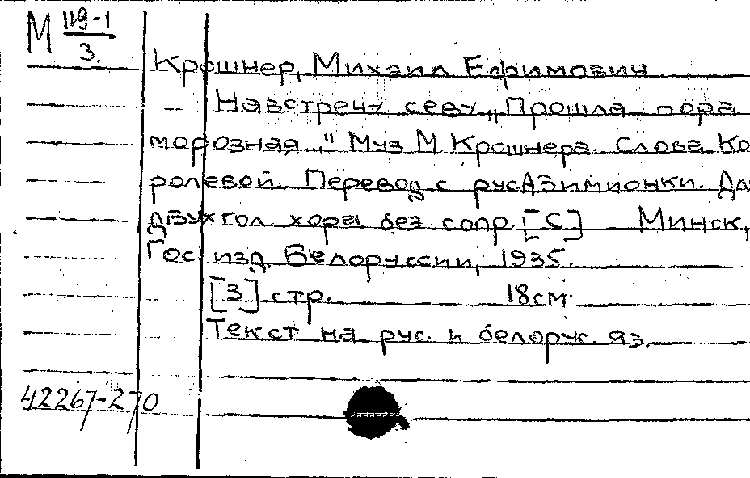 М 119-1
3.
Крошнер, Михаил Ефимович
— Навстречу севу „Прошла пора
морозная..." Муз М Крошнера. Слова Ко-
ролевой. Перевод с рус Азимионки. Для
двухгол хора без сопр. [С] Минск,
Гос изд. Белоруссии, 1935.
[3] стр. 18см
Текст на рус. и белорус. яз.
42267-270